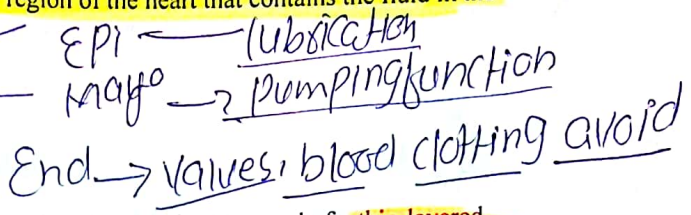 region of the heart that contains the fluid in
- EPI ← lubrication
- Mayo → Pumping function
End → values, blood clotting avoid